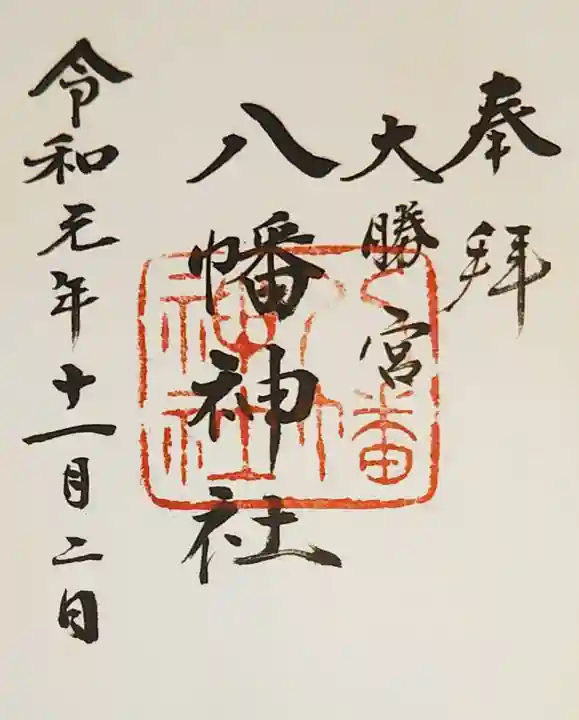 奉拝
大勝宮
八幡神社
令和元年十一月二日
八幡
神社